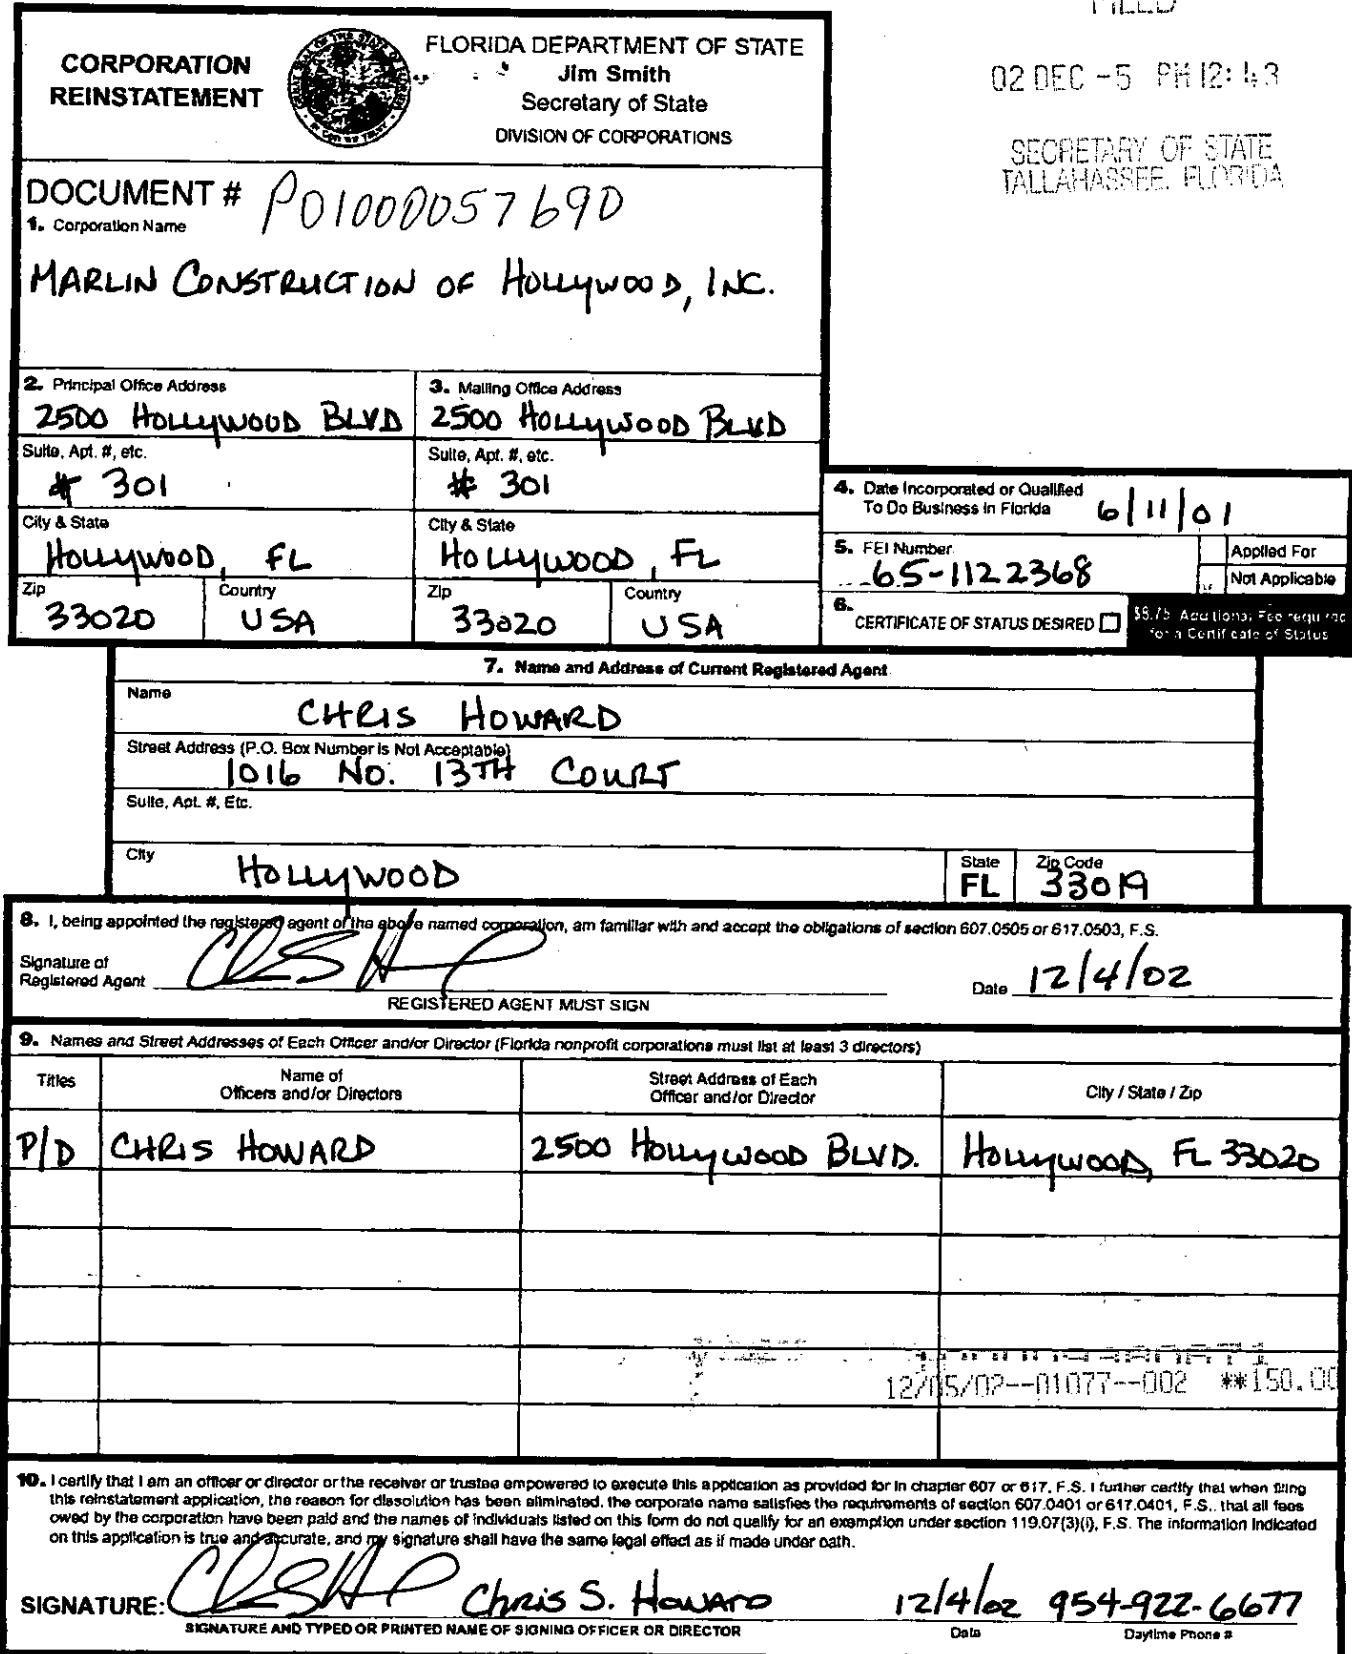 FILED
02 DEC -5 PM 12:43
SECRETARY OF STATE
TALLAHASSEE, FLORIDA
CORPORATION
REINSTATEMENT
FLORIDA DEPARTMENT OF STATE
Jim Smith
Secretary of State
DIVISION OF CORPORATIONS
DOCUMENT # P01000057690
1. Corporation Name
MARLIN CONSTRUCTION OF HOLLYWOOD, INC.
2. Principal Office Address
2500 HOLLYWOOD BLVD
3. Mailing Office Address
2500 HOLLYWOOD BLVD
Suite, Apt. #, etc.
# 301
Suite, Apt. #, etc.
# 301
City & State
HOLLYWOOD, FL
City & State
HOLLYWOOD, FL
Zip
33020
Country
USA
Zip
33020
Country
USA
4. Date Incorporated or Qualified
To Do Business in Florida 6/11/01
5. FEI Number
65-1122368
Applied For
Not Applicable
6.
CERTIFICATE OF STATUS DESIRED
$8.75 Additional Fee required
for a Certificate of Status
7. Name and Address of Current Registered Agent
Name
CHRIS HOWARD
Street Address (P.O. Box Number is Not Acceptable)
1016 NO. 13TH COURT
Suite, Apt. #, Etc.
City
HOLLYWOOD
State
FL
Zip Code
33019
8. I, being appointed the registered agent of the above named corporation, am familiar with and accept the obligations of section 607.0505 or 617.0503, F.S.
Signature of
Registered Agent
Date 12/4/02
REGISTERED AGENT MUST SIGN
9. Names and Street Addresses of Each Officer and/or Director (Florida nonprofit corporations must list at least 3 directors)
Titles
Name of
Officers and/or Directors
Street Address of Each
Officer and/or Director
City / State / Zip
P/D CHRIS HOWARD 2500 HOLLYWOOD BLVD. HOLLYWOOD, FL 33020
12/05/02--01077--002 **150.00
10. I certify that I am an officer or director or the receiver or trustee empowered to execute this application as provided for in chapter 607 or 617, F.S. I further certify that when filing
this reinstatement application, the reason for dissolution has been eliminated, the corporate name satisfies the requirements of section 607.0401 or 617.0401, F.S., that all fees
owed by the corporation have been paid and the names of individuals listed on this form do not qualify for an exemption under section 119.07(3)(i), F.S. The information indicated
on this application is true and accurate, and my signature shall have the same legal effect as if made under oath.
SIGNATURE: Chris S. Howard 12/4/02 954-922-6677
SIGNATURE AND TYPED OR PRINTED NAME OF SIGNING OFFICER OR DIRECTOR
Date
Daytime Phone #